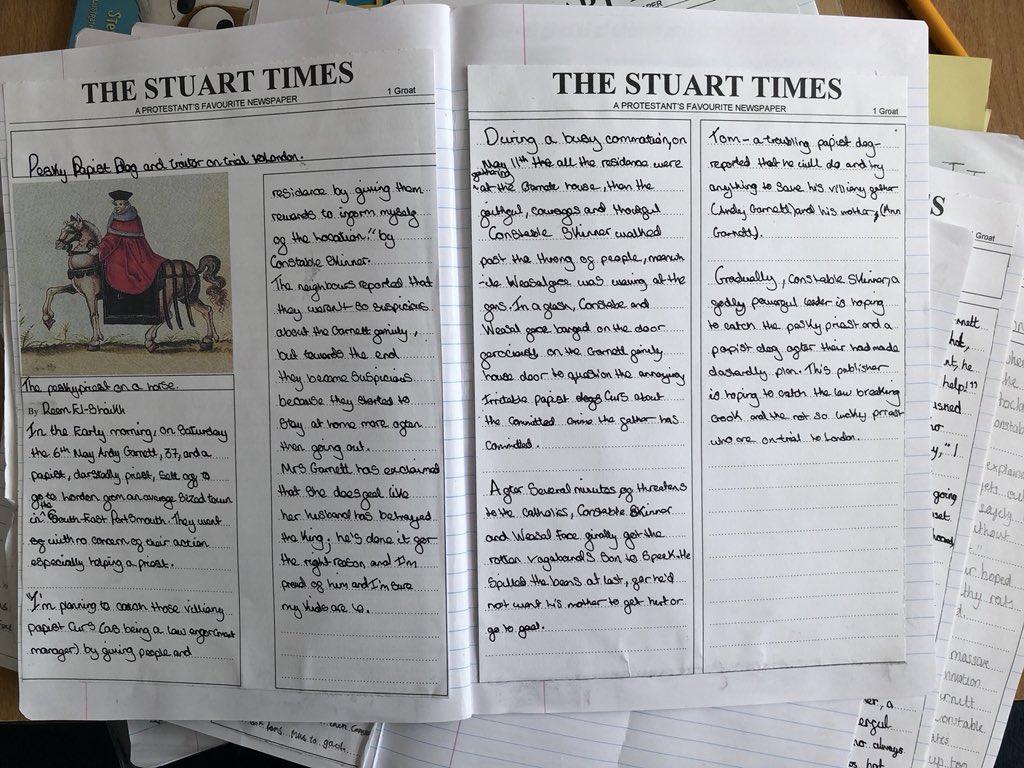 THE STUART TIMES
A PROTESTANT'S FAVOURITE NEWSPAPER
1 Groat
Pesky Papist Dog and traitor on trial to London.
The pesky priest on a horse.
By Reem El-Shaikh
In the Early morning, on Saturday
the 6th May Andy Garnett, 37, and a
papist, darstadly priest, sett off to
go to london from an average sized town
in the South-East Portsmouth. They went
off with no concern of their action
especially helping a priest.
"I'm planning to catch those villiany
papist curs (as being a law enforcment
manager) by giving people and
residance by giving them
rewards to inform myself
of the location." by
Constable Skinner.
The neighbours reported that
they weren't so suspicious
about the Garnett family,
but towards the end
they become suspicious
because they started to
stay at home more often
then going out.
Mrs Garnett has exclaimed
that she does feel like
her husband has betrayed
the King; he's done it for
the right reason and I'm
proud of him and I'm sure
my kids are to.
THE STUART TIMES
A PROTESTANT'S FAVOURITE NEWSPAPER
1 Groat
During a busy commotion, on
May 11th the all the residence were
gathering at the Garnote house, then the
faithful, courages and thoughful
Constable Skinner walked
past the throng of people, meanwh
-ile Weasalface was waving at the
fans. In a flash, Constabe and
Weasal face banged on the door
ferociously on the Garnett family
house door to question the annoying
irritable papist dogs curs about
the committed crime the father has
committed.
After several minutes of threatens
to the catholics, Constable Skinner
and Weasal Face finally got the
rotten vagabond's son to speak. He
spilled the beans at last, for he'd
not want his mother to get hurt or
go to gaol.
Tom - a troubling papist dog-
reported that he will do and try
anything to save his villiany father
(Andy Garnett) and his mother, (Ann
Garnett).
Gradually, Constable Skinner, a
godly powerful leader is hoping
to catch the pesky priest and a
papist dog after their had made
dastardly plan. This publisher
is hoping to catch the law breaking
crook and the not so lucky priest
who are on trial to London.
S
Groat